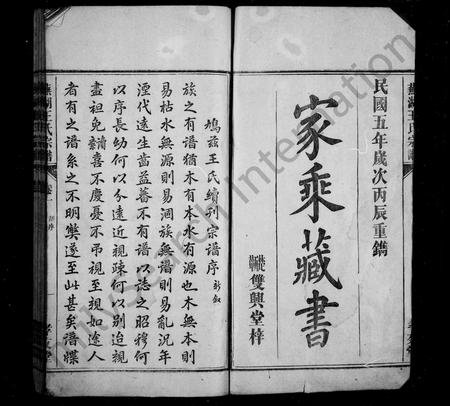 民國五年歲次丙辰重鐫
家乘藏書
雙興堂梓
蕪湖王氏宗譜
鳩茲王氏續刋宗譜序 新敘
族之有譜猶木有本水有源也木無本則
易枯水無源則易涸族無譜則易亂況年
湮代遠生齒益蕃不有譜以誌之昭穆何
以序長幼何以分遠近親疎何以別迨視
盡袒免譜喜不慶憂不弔視至親如途人
者有之譜系之不明弊遂至此甚矣譜牒
蕪湖王氏宗譜 卷一
My Search International